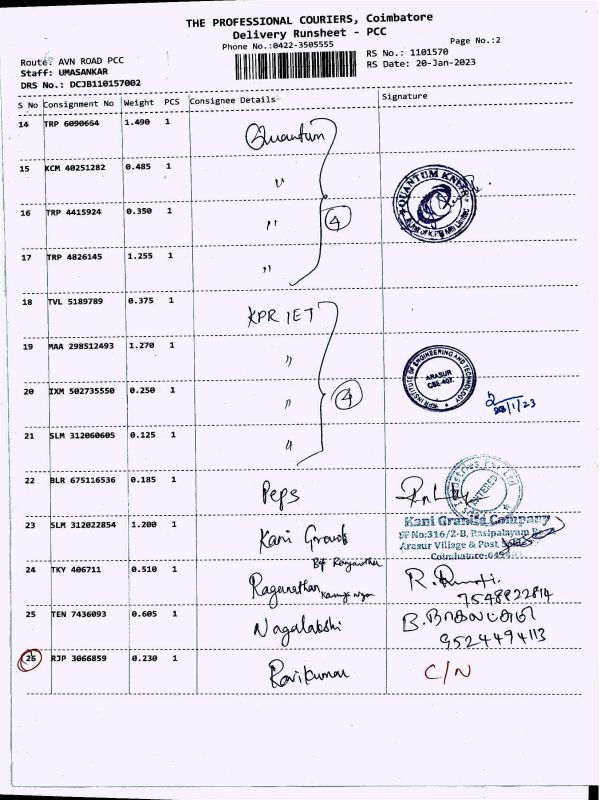 THE PROFESSIONAL COURIERS, Coimbatore
Delivery Runsheet - PCC
Phone No.:0422-3505555
Page No.:2
Route: AVN ROAD PCC
RS No.: 1101570
Staff: UMASANKAR
RS Date: 20-Jan-2023
DRS No.: DCJB110157002
S No Consignment No Weight PCS Consignee Details Signature
14 TRP 6090664 1.490 1 Quantum
15 KCM 40251282 0.485 1 "
QUANTUM KNITS
16 TRP 4415924 0.350 1 " 4
17 TRP 4826145 1.255 1 "
18 TVL 5189789 0.375 1 KPR IET
19 MAA 298512493 1.270 1 "
KPR INSTITUTE OF ENGINEERING AND TECHNOLOGY
ARASUR
CBE-407.
20 IXM 502735550 0.250 1 " 4
20/1/23
21 SLM 312060605 0.125 1 "
22 BLR 675116536 0.185 1 Peps
23 SLM 312022854 1.200 1 Kani
Kani Granite Company
SF No:316/2-B, Rasipalayam
Arasur Village & Post,
Coimbatore-
24 TKY 406711 0.510 1 Ragunathan
7548922814
25 TEN 7436093 0.605 1 Nagalakshi
B. நாகலட்சுமி
9524494113
26 RJP 3066859 0.230 1 Ravikumar C/N